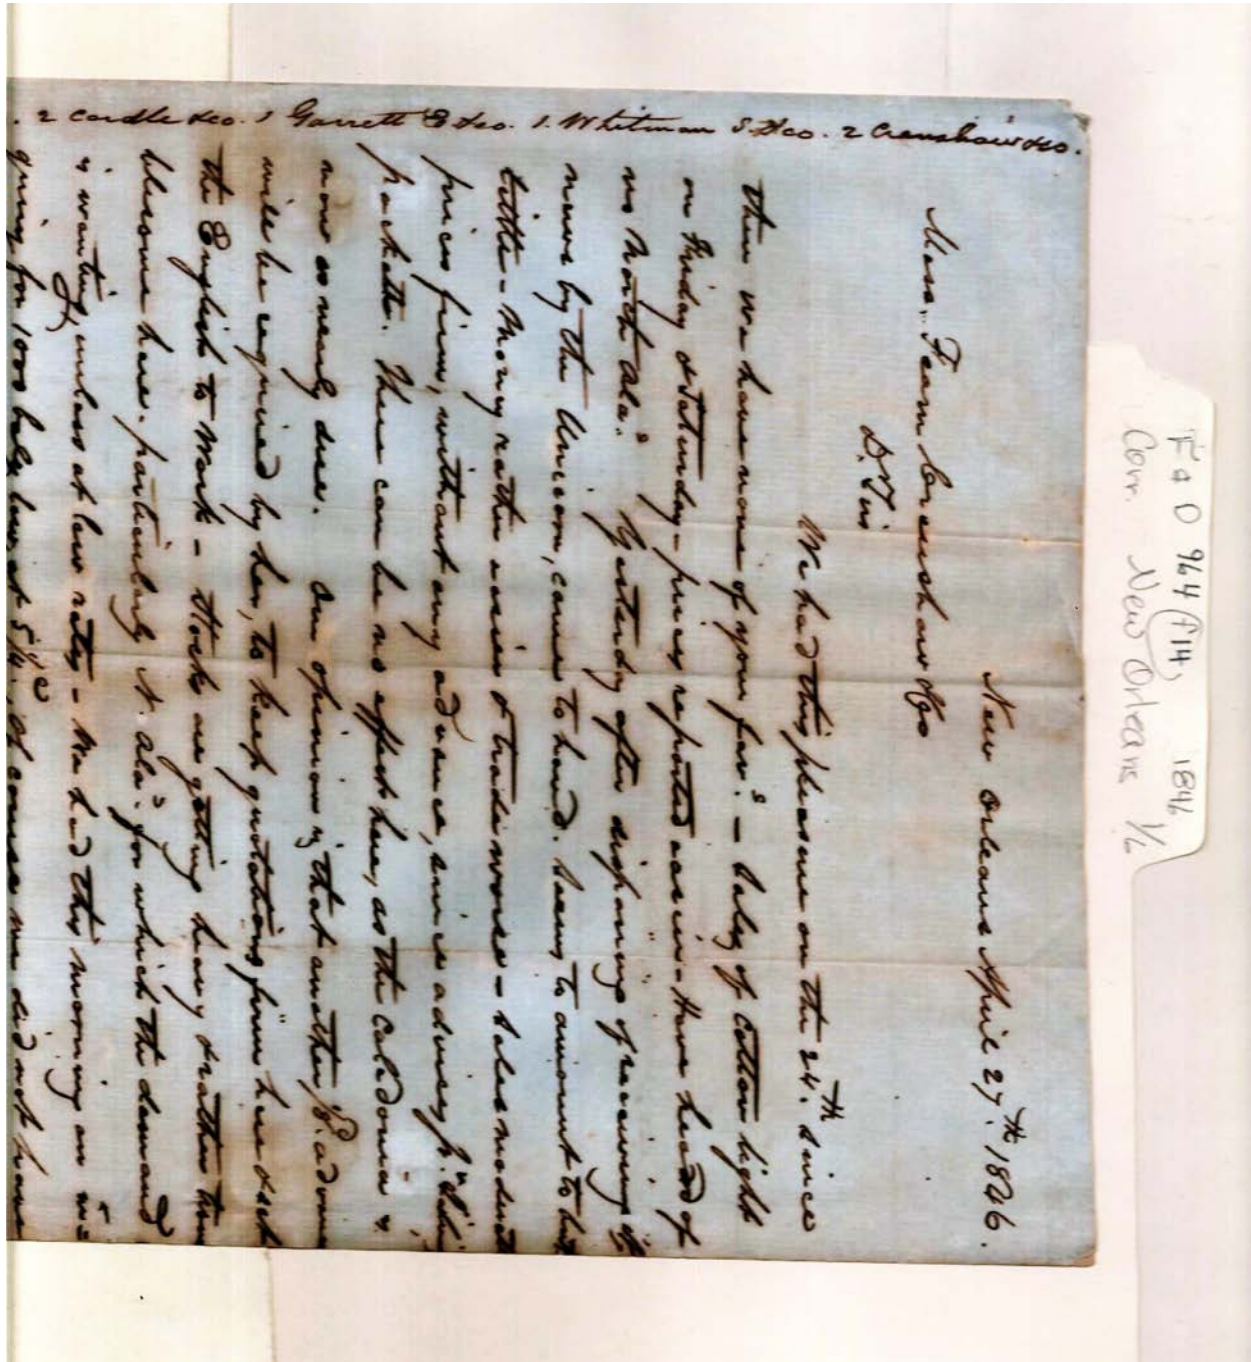 F & D 964 (f14), 1846
Corr. New Orleans 1/6
New Orleans April 27.th 1846.
Mess. Fearn Crenshaw & Co
D. Sirs
We had this pleasure on the 24.th since
then we have none of your fav.s - Sales of Cotton light
on Friday & Saturday - prices reported easier - Have heard of
no North Ala.s Yesterday after dispairing of receiving off
news by the Unicorn, came to hand. Seems to amount to but
little - Money rather easier & trade worse - Sales moderate
prices firm, without any advance, since advices p.r
packetts. There can be no effect here, as the Caledonia is
now so nearly due. Our opinion is that another
will be required by her, to keep quotations firm here & set
the English to work - Stock are getting heavy & rather trou
blesome here - particularly N. Ala.s for which the demand
is wanting, unless at low rates - We had this morning an in=
quiry for 1000 bales low, at 5 3/4. Of course we did not have
. 2 Cardle & co. 1 Garrett B & co. 1. Whitman S. & co. 2 Crenshaw & co.